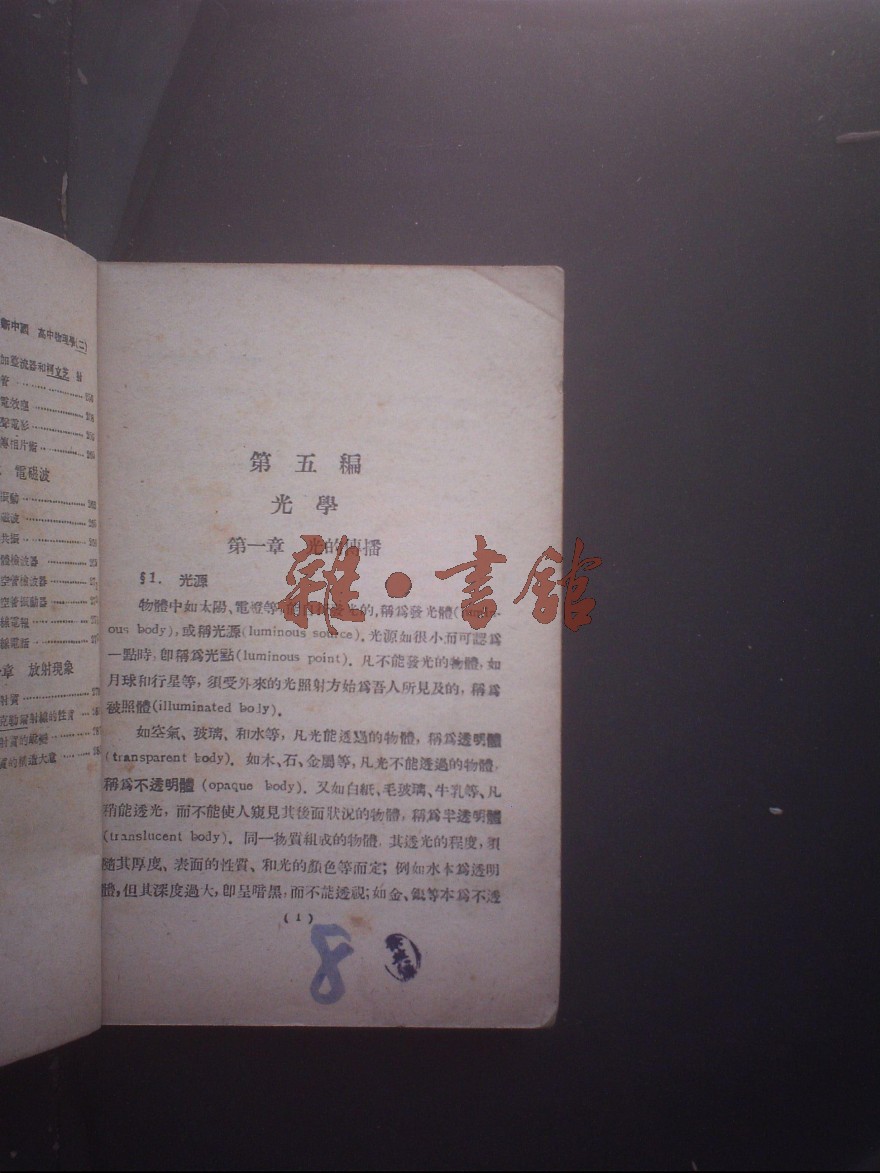 新中國 高中物理學(二)
管
電效應
聲電影
電磁波
磁波
共振
體檢波器
空管檢波器
空管振動器
線電報
線電話
章 放射現象
射質
第五編
光學
第一章 光的傳播
雜·書館
§1. 光源
物體中如太陽、電燈等發光的,稱爲發光體(
ous body),或稱光源(luminous source).光源如很小而可認爲
一點時,卽稱爲光點(luminous point). 凡不能發光的物體,如
月球和行星等,須受外來的光照射方始爲吾人所見及的,稱爲
被照體(illuminated body).
如空氣、玻璃、和水等,凡光能透過的物體,稱爲透明體
(transparent body). 如木、石、金屬等,凡光不能透過的物體,
稱爲不透明體 (opaque body). 又如白紙、毛玻璃、牛乳等、凡
稍能透光,而不能使人窺見其後面狀況的物體,稱爲半透明體
(translucent body). 同一物質組成的物體,其透光的程度,須
隨其厚度、表面的性質、和光的顏色等而定;例如水本爲透明
體,但其深度過大,卽呈暗黑,而不能透視;如金、銀等本爲不透
(1)
8